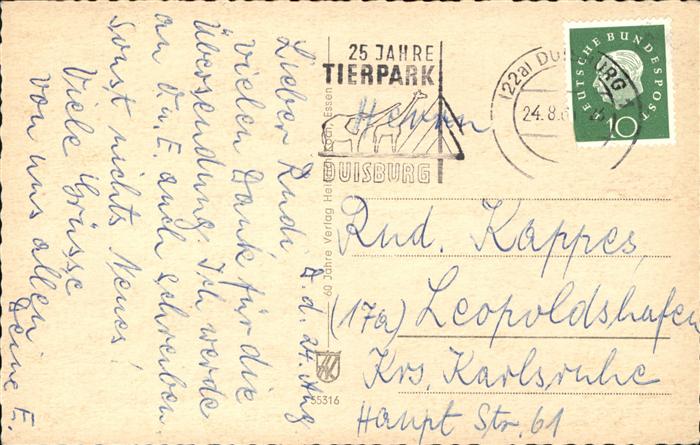 Lieber Rudi! D. d. 24. Aug
Vielen Dank für die
Übersendung. Ich werde
an V. u. E. auch schreiben.
Sonst nichts Neues!
Viele Grüsse
von uns allen
Deine E.
25 JAHRE
TIERPARK
DUISBURG
(22a) DUISBURG 1
24.8.6
DEUTSCHE BUNDESPOST
10
60 Jahre Verlag Essen
55316
Herrn
Rud. Kappes
(17a) Leopoldshafen
Krs. Karlsruhe
Haupt Str. 61